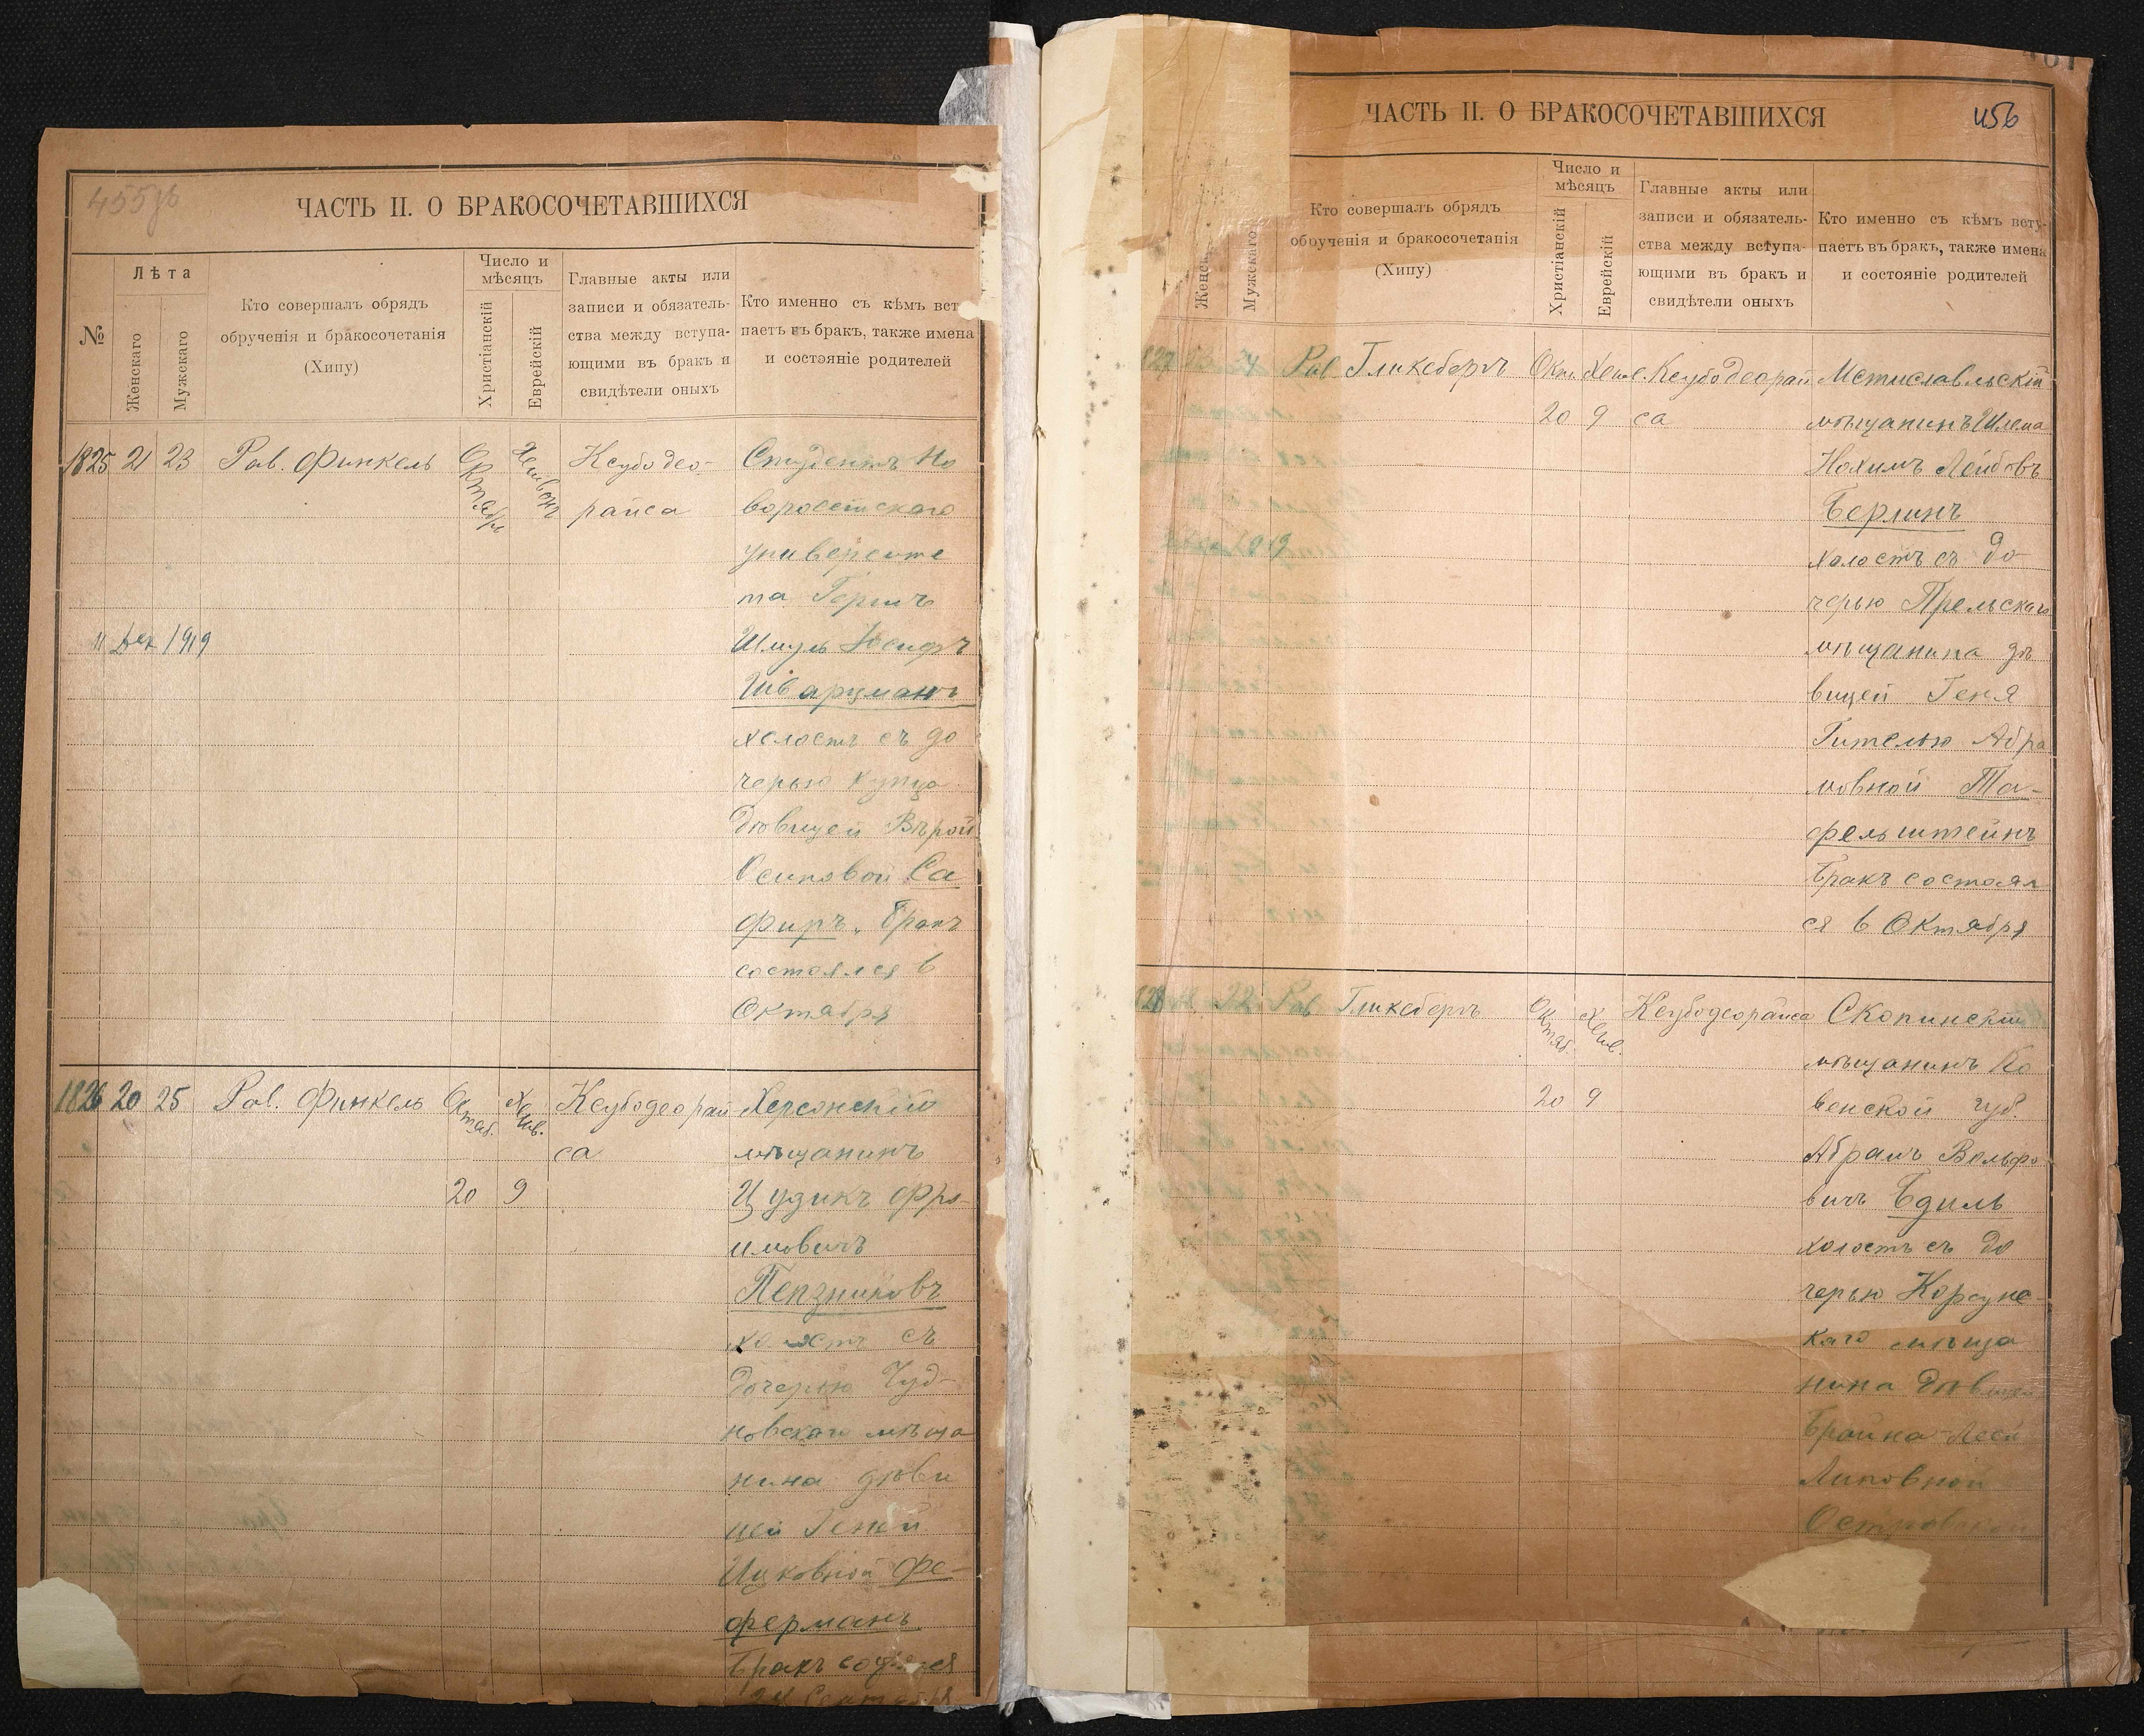 455об
ЧАСТЬ II. О БРАКОСОЧЕТАВШИХСЯ
№
Лѣта
Женскаго
Мужскаго
Кто совершалъ обрядъ
обрученія и бракосочетанія
(Хипу)
Число и
мѣсяцъ
Христіанскій
Еврейскій
Главные акты или
записи и обязатель-
ства между вступа-
ющими въ бракъ и
свидѣтели оныхъ
Кто именно съ кѣмъ вст
паетъ въ бракъ, также имена
и состояніе родителей
1825 21 23 Рав. Финкель Октября Хешвонъ Ксубо део- Студентъ Но
райса воросейскаго
университе
та Горшъ
11 Дек 1919 Шмуль Іосифъ
Шварцманъ
холостъ съ до
черью купца
дѣвицей Вѣрой
Осиповой Са
фиръ. Бракъ
состоялся 6
Октября
1826 20 25 Рав. Финкель Октяб. Хешв. Ксубодеорай Херсонскій
са мѣщанинъ
20 9
имовичъ
Пензниковъ
холостъ съ
дочерью Чуд-
новскаго мѣща
нина дѣви
цей Геней
Ицковной Фе-
ферманъ
Бракъ
24 Сентября
ЧАСТЬ II. О БРАКОСОЧЕТАВШИХСЯ
456
Мужскаго
Кто совершалъ обрядъ
обрученія и бракосочетанія
(Хипу)
Число и
мѣсяцъ
Христіанскій
Еврейскій
Главные акты или
записи и обязатель-
ства между вступа-
ющими въ бракъ и
свидѣтели оныхъ
Кто именно съ кѣмъ всту-
паетъ въ бракъ, также имена
и состояніе родителей
Рав Гликсбергъ Окт. Хеш. Ксубодеорай Мстиславльскій
20 9 са мѣщанинъ Шлема
Нохимъ Лейбовъ
Берлинъ
холостъ съ до-
черью
мѣщанина дѣ
вицей Геня
Гителью Абра
мовной Та-
фельштейнъ
Бракъ состоял
ся 6 Октября
22 Рав Гликсбергъ Октяб. Хешв. Ксубодеорайса Скопинскій
мѣщанинъ Ко
20 9 венской губ.
Абрамъ Вольфо
вичъ Бдиль
холостъ съ до
черью Корсунс
каго мѣща
нина дѣвицей
Брайна
Липовной